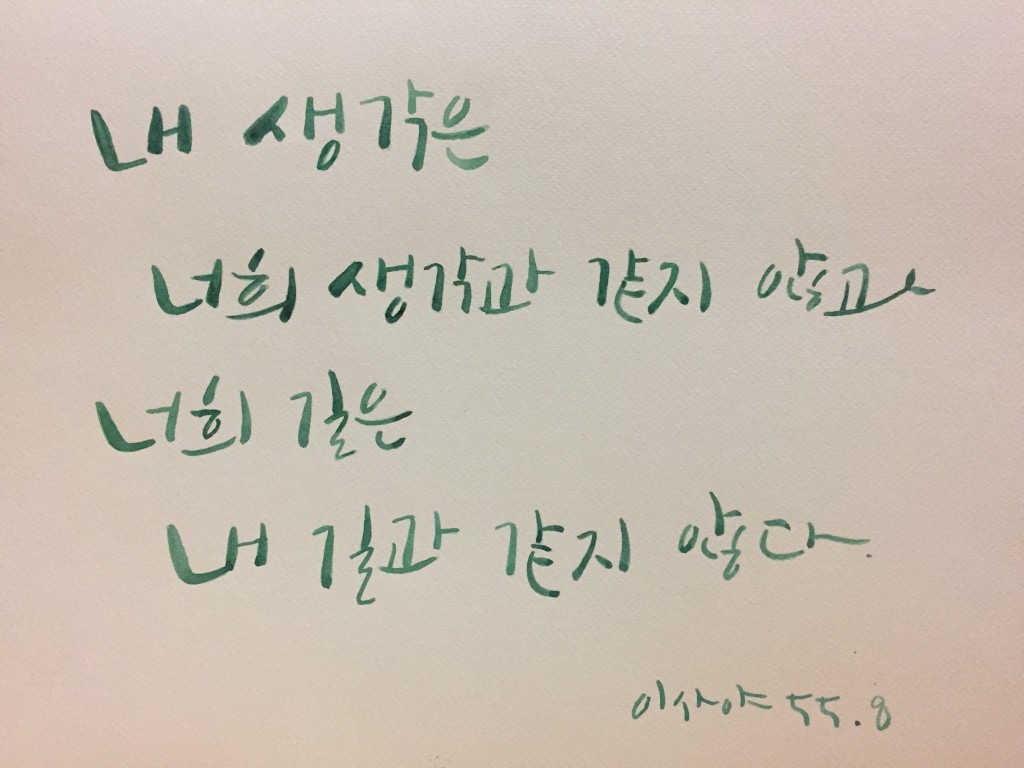 내 생각은
너희 생각과 같지 않고
너희 길은
내 길과 같지 않다.
이사야 55.8